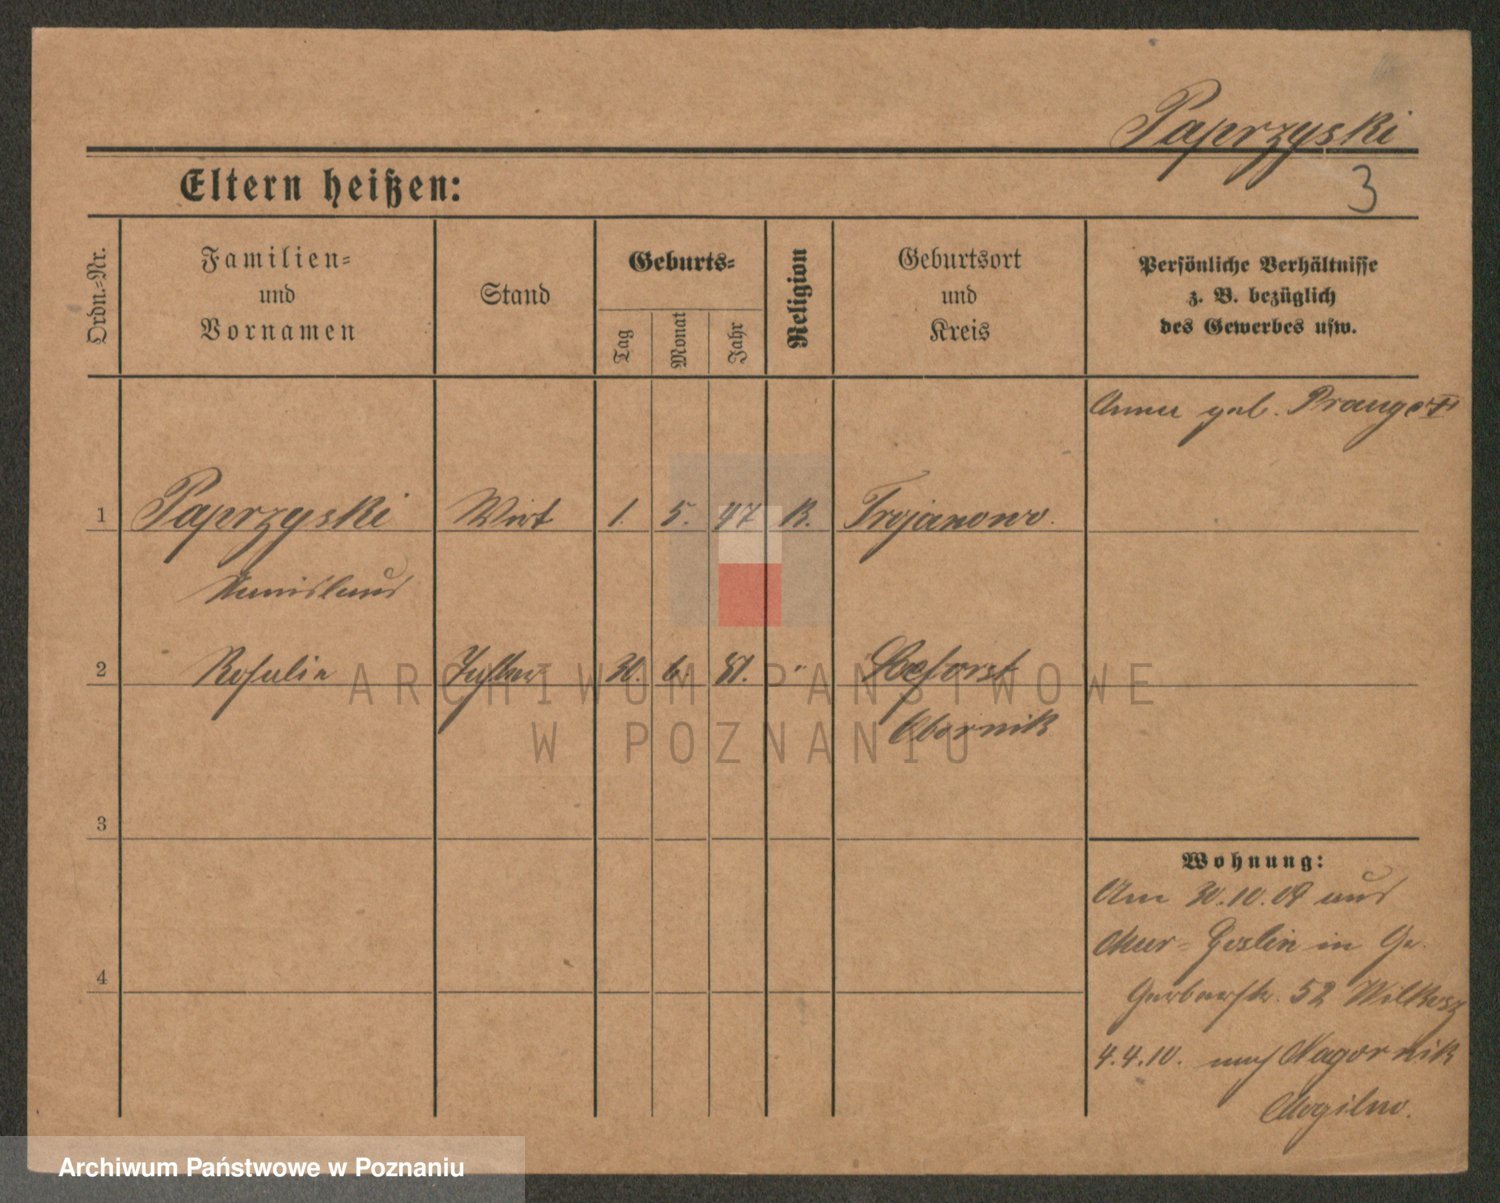 Paprzyski
3
Eltern heißen:
Ordn.-Nr.
Familien-
und
Vornamen
Stand
Geburts-
Tag
Monat
Jahr
Religion
Geburtsort
und
Kreis
Persönliche Verhältnisse
z. B. bezüglich
des Gewerbes usw.
Anna geb.
1 Paprzyski Wirt 1. 5. 47 K. Trojanowo.
Stanislaus
2 Rosalie Tochter 30. 6. 81. "
Obornik
3
Wohnung:
Am 30.10.09 aus
Mur-Goslin in
4
Gerberstr. 52
4.4.10. nach Nagornik
Mogilno.
ARCHIWUM PAŃSTWOWE
W POZNANIU
Archiwum Państwowe w Poznaniu